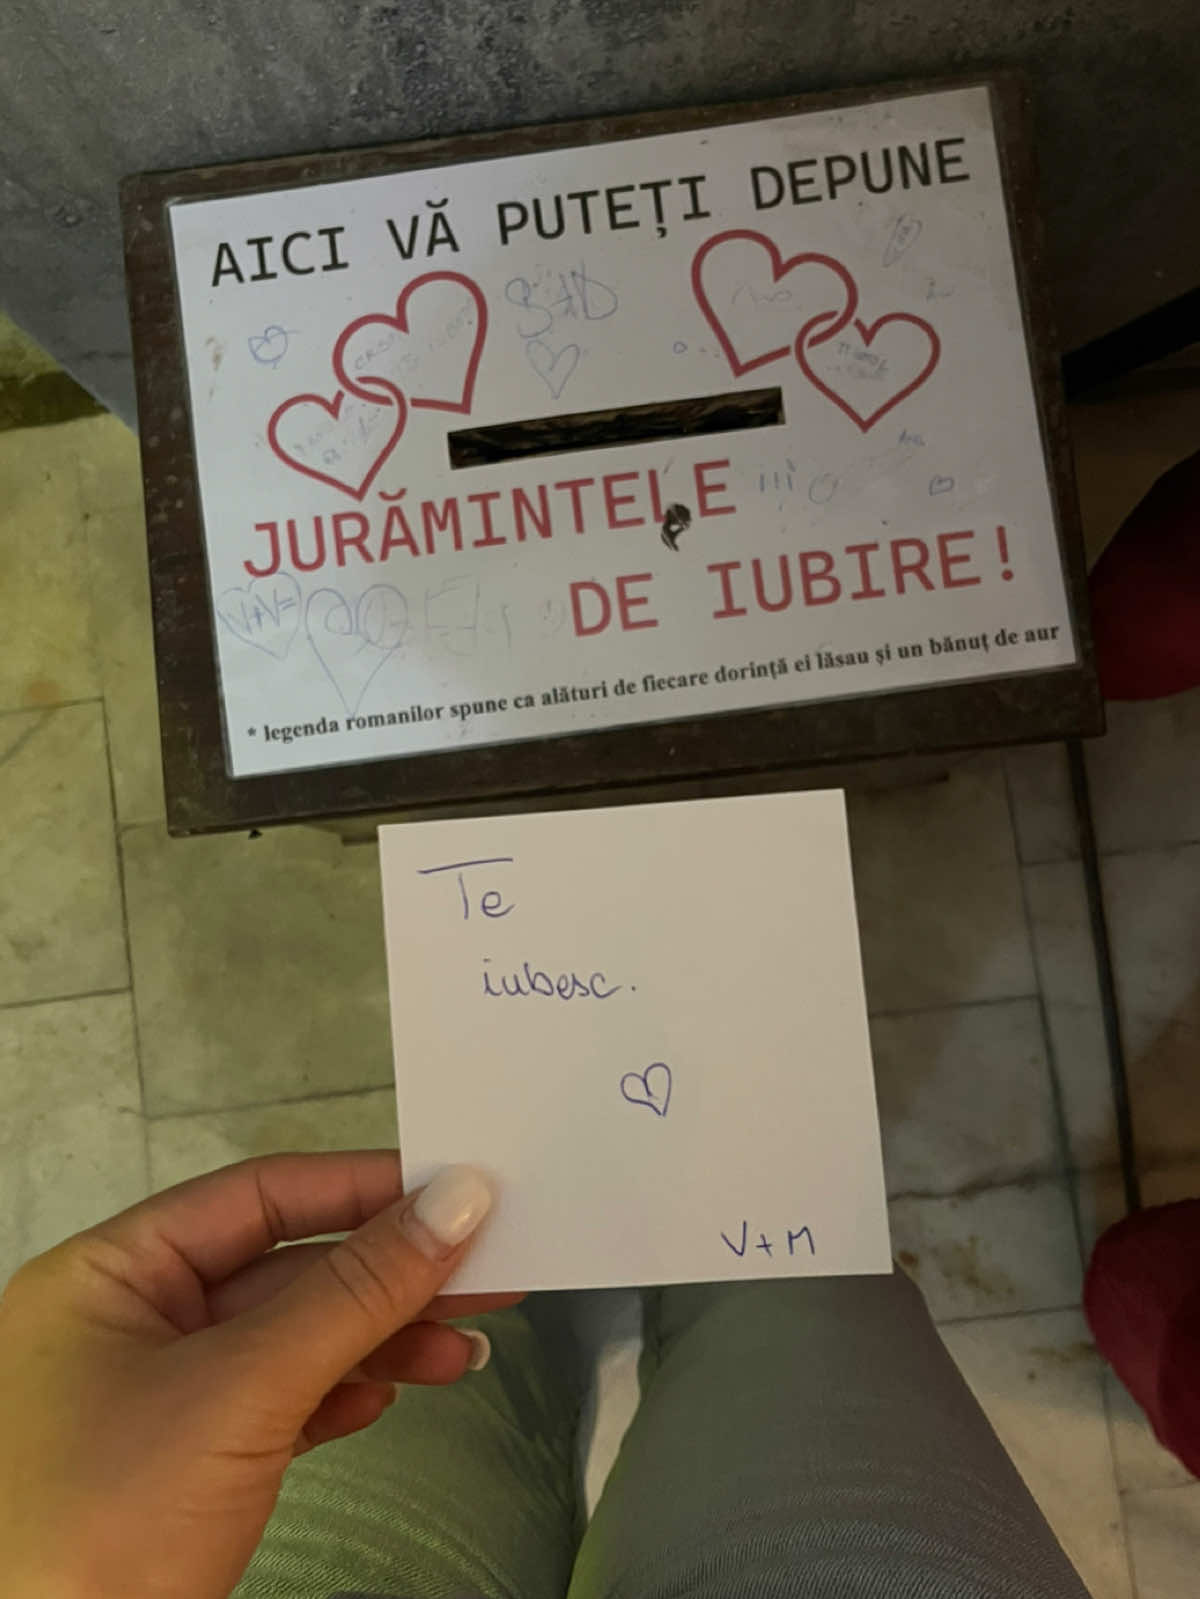 AICI VĂ PUTEȚI DEPUNE
S+D
JURĂMINTELE
!!!
DE IUBIRE!
V+V=
* legenda romanilor spune ca alături de fiecare dorință ei lăsau și un bănuț de aur
Te
iubesc.
V+M